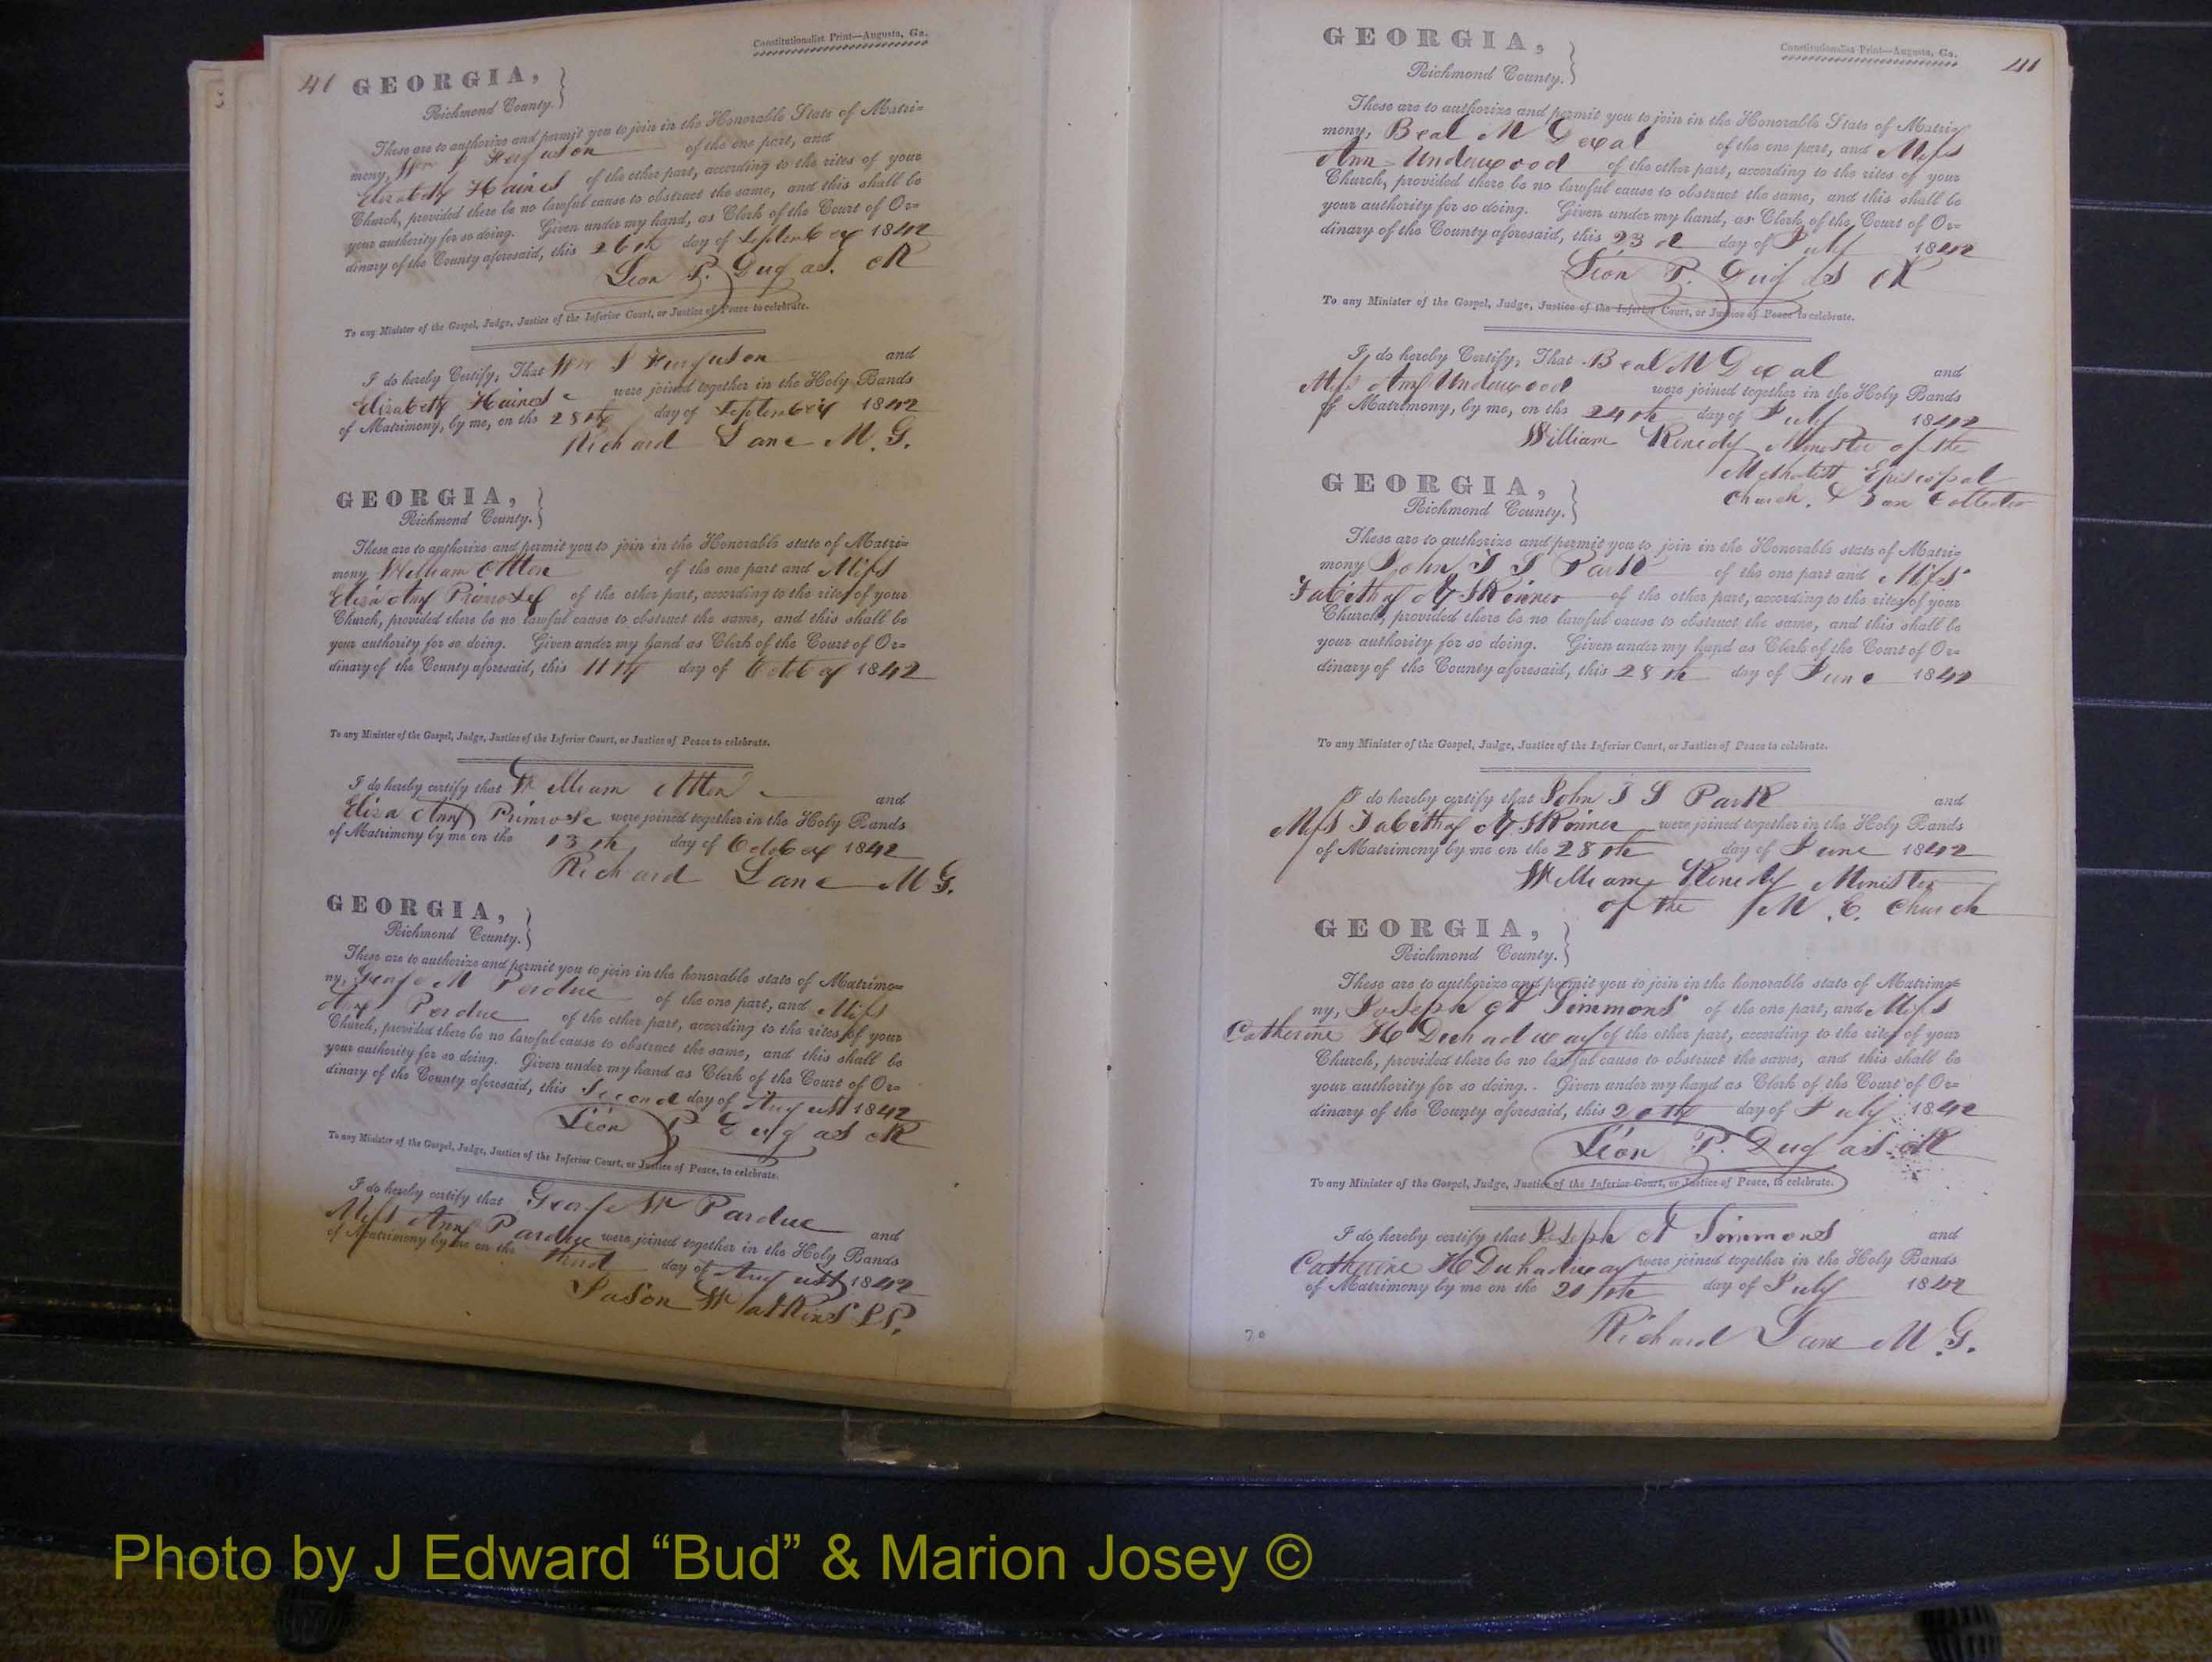 Constitutionalist Print—Augusta, Ga.
GEORGIA,
Richmond County.
These are to authorize and permit you to join in the Honorable State of Matri=
mony, Wm J Furguson of the one part, and
Elizabeth Haines of the other part, according to the rites of your
Church, provided there be no lawful cause to obstruct the same, and this shall be
your authority for so doing. Given under my hand, as Clerk of the Court of Or=
dinary of the County aforesaid, this 26th day of September 1842
Leon P. Dugas. Clk
To any Minister of the Gospel, Judge, Justice of the Inferior Court, or Justice of Peace to celebrate.
I do hereby Certify, That Wm J Furguson and
Elizabeth Haines were joined together in the Holy Bands
of Matrimony, by me, on the 28th day of September 1842
Richard Lane M. G.
GEORGIA,
Richmond County.
These are to authorize and permit you to join in the Honorable state of Matri=
mony William of the one part and Miss
Eliza Ann Primrose of the other part, according to the rites of your
Church, provided there be no lawful cause to obstruct the same, and this shall be
your authority for so doing. Given under my hand as Clerk of the Court of Or=
dinary of the County aforesaid, this 11th day of 1842
To any Minister of the Gospel, Judge, Justice of the Inferior Court, or Justice of Peace to celebrate.
I do hereby certify that William and
Eliza Ann Primrose were joined together in the Holy Bands
of Matrimony by me on the 13th day of October 1842
Richard Lane M G.
GEORGIA,
Richmond County.
These are to authorize and permit you to join in the honorable state of Matrimo=
ny, George M Perdue of the one part, and Miss
Ann Perdue of the other part, according to the rites of your
Church, provided there be no lawful cause to obstruct the same, and this shall be
your authority for so doing. Given under my hand as Clerk of the Court of Or=
dinary of the County aforesaid, this Second day of August 1842
Léon P Dugas Clk
To any Minister of the Gospel, Judge, Justice of the Inferior Court, or Justice of Peace, to celebrate.
I do hereby certify that George W Pardue and
Miss Ann Pardue were joined together in the Holy Bands
of Matrimony by me on the third day of August 1842
Jason Watkins
Constitutionalist Print—Augusta, Ga.
41
GEORGIA,
Richmond County.
These are to authorize and permit you to join in the Honorable State of Matri=
mony, Beal M of the one part, and Miss
Ann Underwood of the other part, according to the rites of your
Church, provided there be no lawful cause to obstruct the same, and this shall be
your authority for so doing. Given under my hand, as Clerk of the Court of Or=
dinary of the County aforesaid, this 23d day of July 1842
Léon P. Dugas Clk
To any Minister of the Gospel, Judge, Justice of the Inferior Court, or Justice of Peace to celebrate.
I do hereby Certify, That Beal M and
Miss Ann Underwood were joined together in the Holy Bands
of Matrimony, by me, on the 24th day of July 1842
William Kenedy Minester of the
Methodist Episcopal
Church.
GEORGIA,
Richmond County.
These are to authorize and permit you to join in the Honorable state of Matri=
mony John Park of the one part and Miss
Tabitha A Skinner of the other part, according to the rites of your
Church, provided there be no lawful cause to obstruct the same, and this shall be
your authority for so doing. Given under my hand as Clerk of the Court of Or=
dinary of the County aforesaid, this 28th day of June 1842
To any Minister of the Gospel, Judge, Justice of the Inferior Court, or Justice of Peace to celebrate.
I do hereby certify that John Park and
Miss Tabitha A Skinner were joined together in the Holy Bands
of Matrimony by me on the 28th day of June 1842
William Kenedy Minister
of the M. E. Church
GEORGIA,
Richmond County.
These are to authorize and permit you to join in the honorable state of Matrimo=
ny, Joseph A Simmons of the one part, and Miss
Catherine H of the other part, according to the rites of your
Church, provided there be no lawful cause to obstruct the same, and this shall be
your authority for so doing. Given under my hand as Clerk of the Court of Or=
dinary of the County aforesaid, this 20th day of July 1842
Léon P. Dugas Clk
To any Minister of the Gospel, Judge, Justice of the Inferior Court, or Justice of Peace, to celebrate.
I do hereby certify that Joseph A Simmons and
Catherine H were joined together in the Holy Bands
of Matrimony by me on the 20th day of July 1842
Richard Lane M. G.
Photo by J Edward “Bud” & Marion Josey ©